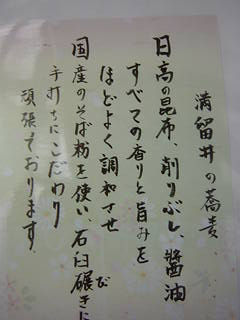 満留井の蕎麦
日高の昆布、削りぶし、醤油
すべての香りと旨みを
ほどよく調和させ
国産のそば粉を使い、石臼碾きに
手打ちにこだわり
頑張ております
び